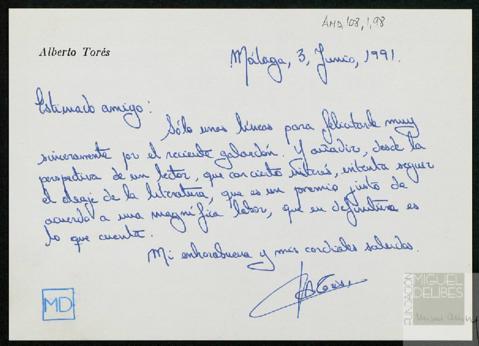 AMD, 108, 1, 98
Alberto Torés
Málaga, 3, Junio, 1991.
Estimado amigo:
Sólo unas líneas para felicitarle muy
sinceramente por el reciente galardón. Y añadir, desde la
perspectiva de un lector, que con cierto interés, intenta seguir
el oleaje de la literatura, que es un premio justo de
acuerdo a una magnífica labor, que en definitiva es
lo que cuenta.
Mi enhorabuena y mis cordiales saludos.
MD
FUNDACIÓN
MIGUEL
DELIBES